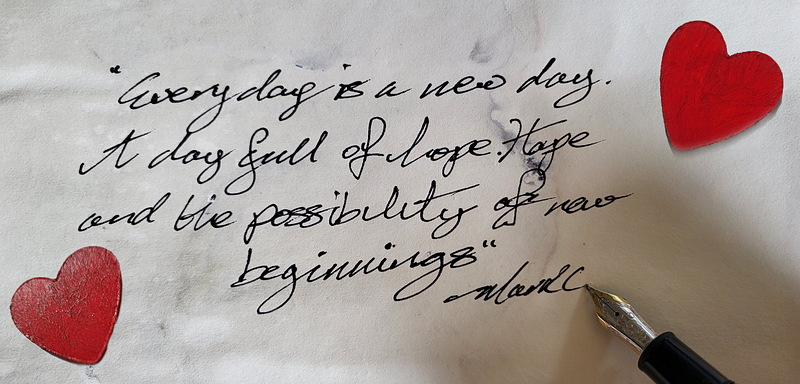 "Everyday is a new day.
A day full of hope. Hope
and the possibility of new
beginnings"
~Mark C